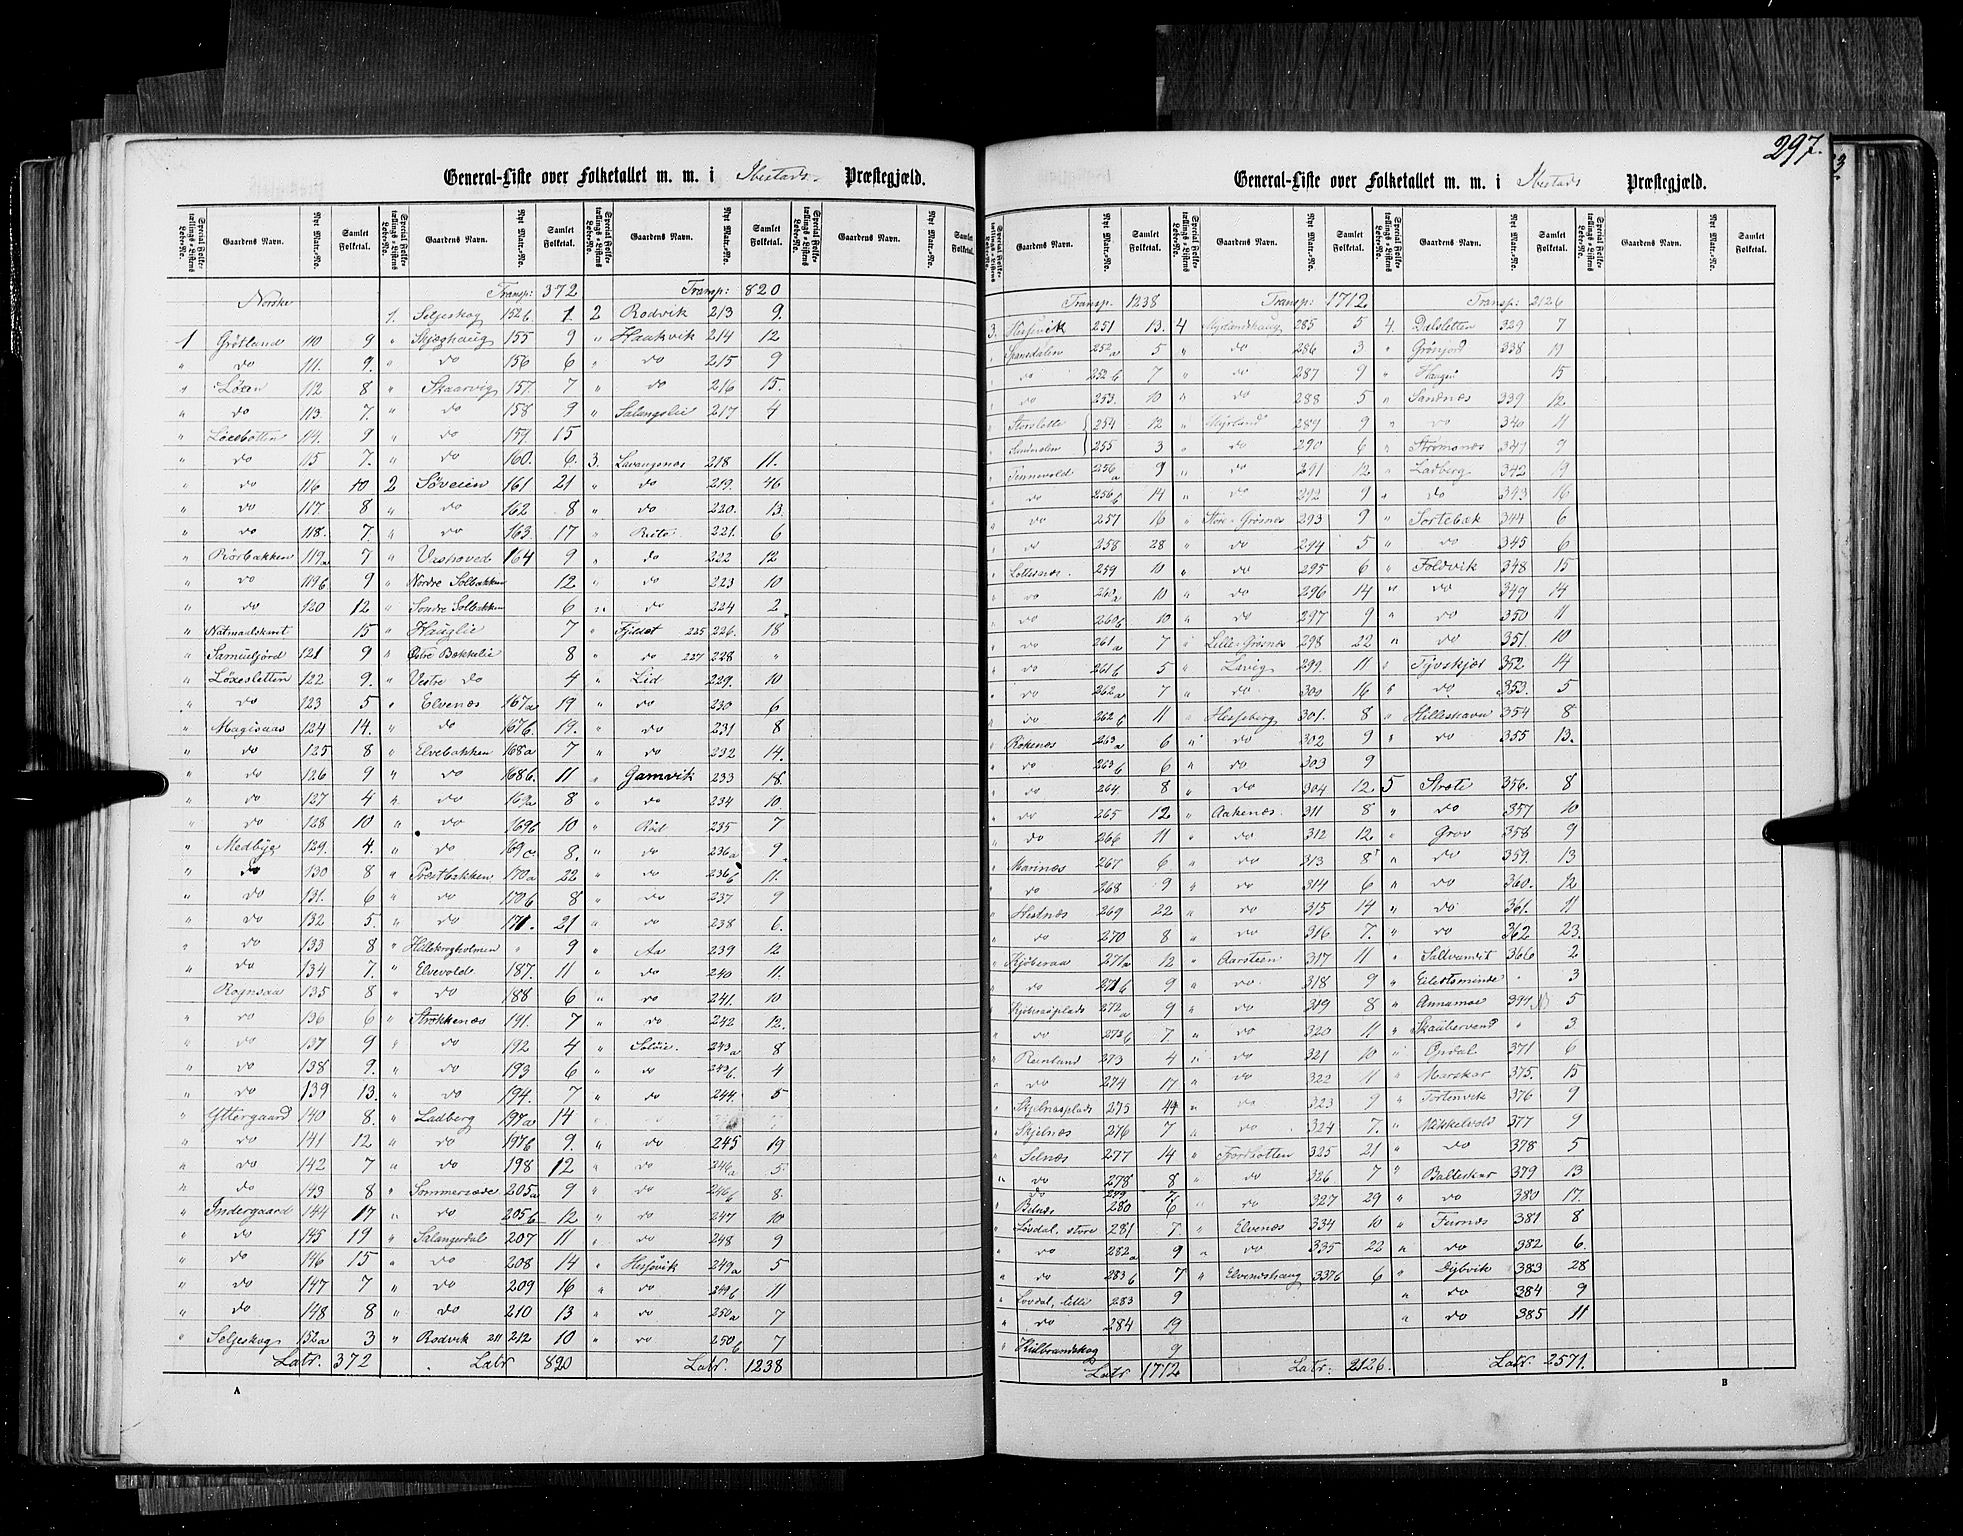 297.
General-Liste over Folketallet m. m. i Ibestads Præstegjæld.
Special Folketællings-Listens Løbe-No. Gaardens Navn. Nyt Matr.-No. Samlet Folketal.
Norske
1 Grötland 110 9
" do 111. 9.
" Löxen 112 8
" do 113 7
" Löxebotten 114. 9
" do 115 7.
" do 116 10
" do 117. 8
" do 118. 7.
" Rörbakken 119a 7
" do 119b 9
" do 120 12
" 15
" 121 9
" Löxesletten 122 9.
" do 123 5
" Magisaas 124 14.
" do 125 8
" do 126 9
" do 127 4
" do 128 10
" Medbye 129. 4.
" do 130 8
" do 131. 6
" do 132 5.
" do 133 8
" do 134 7.
Rognsaa 135 8
" do 136 6
" do 137 9
" do 138 9.
" do 139 13.
" Yttergaard 140 8.
" do 141 12
" do 142 7
" do 143 8
" Indergaard 144 17
" do 145 19
" do 146 15
" do 147 7
" do 148 8
" Seljeskog 152a 3
Latr. 372
Transp: 372
1. Seljeskog 152b 1.
" Skjæghaug 155 9
" do 156 6
" Skaarvig 157. 7
" do 158 9
" do 159. 15
" do 160. 6.
2 Söveien 161 21
" do 162 8
" do 163. 17
" Veshoved 164 9
" Nordre Solbakken 12
" Söndre Solbakken 6
" Hauglie 7
" Östre Bakkelie 8
" Vestre do 4
" Elvenæs 167a 19
" do 167b. 19.
" Elvebakken 168a 7
" do 168b. 11
" do 169a 8
" do 169b 10
" do 169c. 8.
" Præstbakken 170a 22
" do 170b 8
" do 171. 21
" 9
" Elvevold 187. 11
" do 188 6
" Strökkenæs 191. 7
" do 192 4
" do 193 6
" do 194. 7
" Ladberg 197a 14
" do 197b 9.
" do 198 12
" Sommersæde 205a 9
" do 205b 12
" Salangerdal 207 11
" do 208 14
" do 209 16
" do 210 13
" Rodvik 211 212 10
Latr 820
Transp: 820
2 Rodvik 213 9.
" Haukvik 214 12
" do 215 9
" do 216 15.
" Salangslie 217 4
3. Lavangsnæs 218 11.
" do 219. 46
" do 220. 13.
" 221. 6
" do 222 12
" do 223 10
" do 224 2
" 225 226. 18
" do 227 228 "
" Lid 229. 10
" do 230 6
" do 231 8
" do 232 14.
" Gamvik 233 18.
" do 234 10.
" Röd 235 7
" do 236a 9
" do 236b 11.
" do 237 9
" do 238 6.
" Aa 239 12
" do 240 11.
" do 241. 10
" do 242 12.
" Solöie. 243a 8
" do 243b. 4
" do 244. 5
" do 245 19
" do 246a 5
" do 246b 8.
" do 247 10
" do 248 9
" Hesjevik 249a 5
" do 249b 11
" do 250a 7
" do 250b 7
Latr. 1238
A
General-Liste over Folketallet m. m. i Ibestads Præstegjæld.
Gaardens Navn. Nyt Matr.-No. Samlet Folketal. Special Folketællings-Listens Løbe-No.
Transp. 1238
3. Hesjevik 251 13.
" Spansdalen 252a 5
" do 252b 7
" do 253. 10
" Storslotte 254 12
" 255 3
" Tennevold 256a 9
" do 256b 14
" do 257 16
" do 258 28
" Lottesnæs. 259 10
" do 260a 10
" do 260b 10
" do 261a 7
" do 261b 5
" do 262a 7
" do 262b 11
" Rökenæs 263a 6
" do 263b 6
" do 264 8
" do 265 12
" do 266 11
" Marinæs 267 6
" do 268 9
" Hestnæs 269 22
" do 270 8
" Kjöberaa 271a 12
" do 271b 9
" 272a 9
" do 272b 7.
" Reinland 273 4
" do 274 17
" Skjelnæsplads 275
" Skjelnæs 276 7
" Selnæs 277 14
" do 278 8
do 279
" 280 6
" Lövdal, store 281 7.
" do 282a 9
" do 283b 7
" Lövdal, lille 283 9
" do 284 19
" Hilbrandskog 9
Latr 1712
Transp: 1712.
4 Myrlandshaug 285 5
" do 286 3
" do 287 9
" do 288 5
" Myrland 289 9
" do 290 6
" do 291 12.
" do 292 9
" Store-Grösnes 293 9
" do 294 5
" do 295 6
" do 296 14
" do 297 9
" Lille-Grösnes 298 22
" Lavig 299. 11
" do 300 16
" Hesseberg 301. 8
" do 302 9
" do 303 9
do 304 12
" Aakenæs. 311 8
" do 312 12.
" do 313 8
" do 314 6
" do 315 14
" do 316 7.
" Aarsteen 317 11
" do 318 9
" do 319 8
" do 320 11
" do 321 10
" do 322 11
" do 323 9
" do 324 7.
" Fjordbotten 325 21
" do 326 7
" do 327 29
" Elvenæs 334 10
" do 335 22
" Elveneshaug 337b 6
Latr: 2126.
Transp: 2126
4. Dalsletten 329 7
" Grönjord 338
" Haugen 15
" Sandnæs 339 12
" do 340 11
" Strömsnæs 341 9
" Ladberg 342 19
" do 343 16
" Sortebæk 344 6
" do 345 6
" Foldvik 348 15
" do 349 14
" do 350 11
" do 351. 10
" Tjoskjær 352 14
" do 353. 5
" Hilleshavn 354 8
" do 355 13.
5 Stræte 356. 8
" do 357 10
" Grov 358 9
" do 359. 13
" do 360. 12
" do 361. 11
" do 362 23.
" Saltvandvit 366 2
" " 3
" Annamoe 5
" " 3
" Opdal 371 6
" Marskar 375. 15
" Tortenvik 376 9
" Mikkelvold 377 9
" do 378 5
" Balteskar 379 13
" do 380 17.
" Furnæs 381 8
" do 382 6.
" Dybvik 383 28
" do 384 9
" do 385 11
Latr. 2571.
B